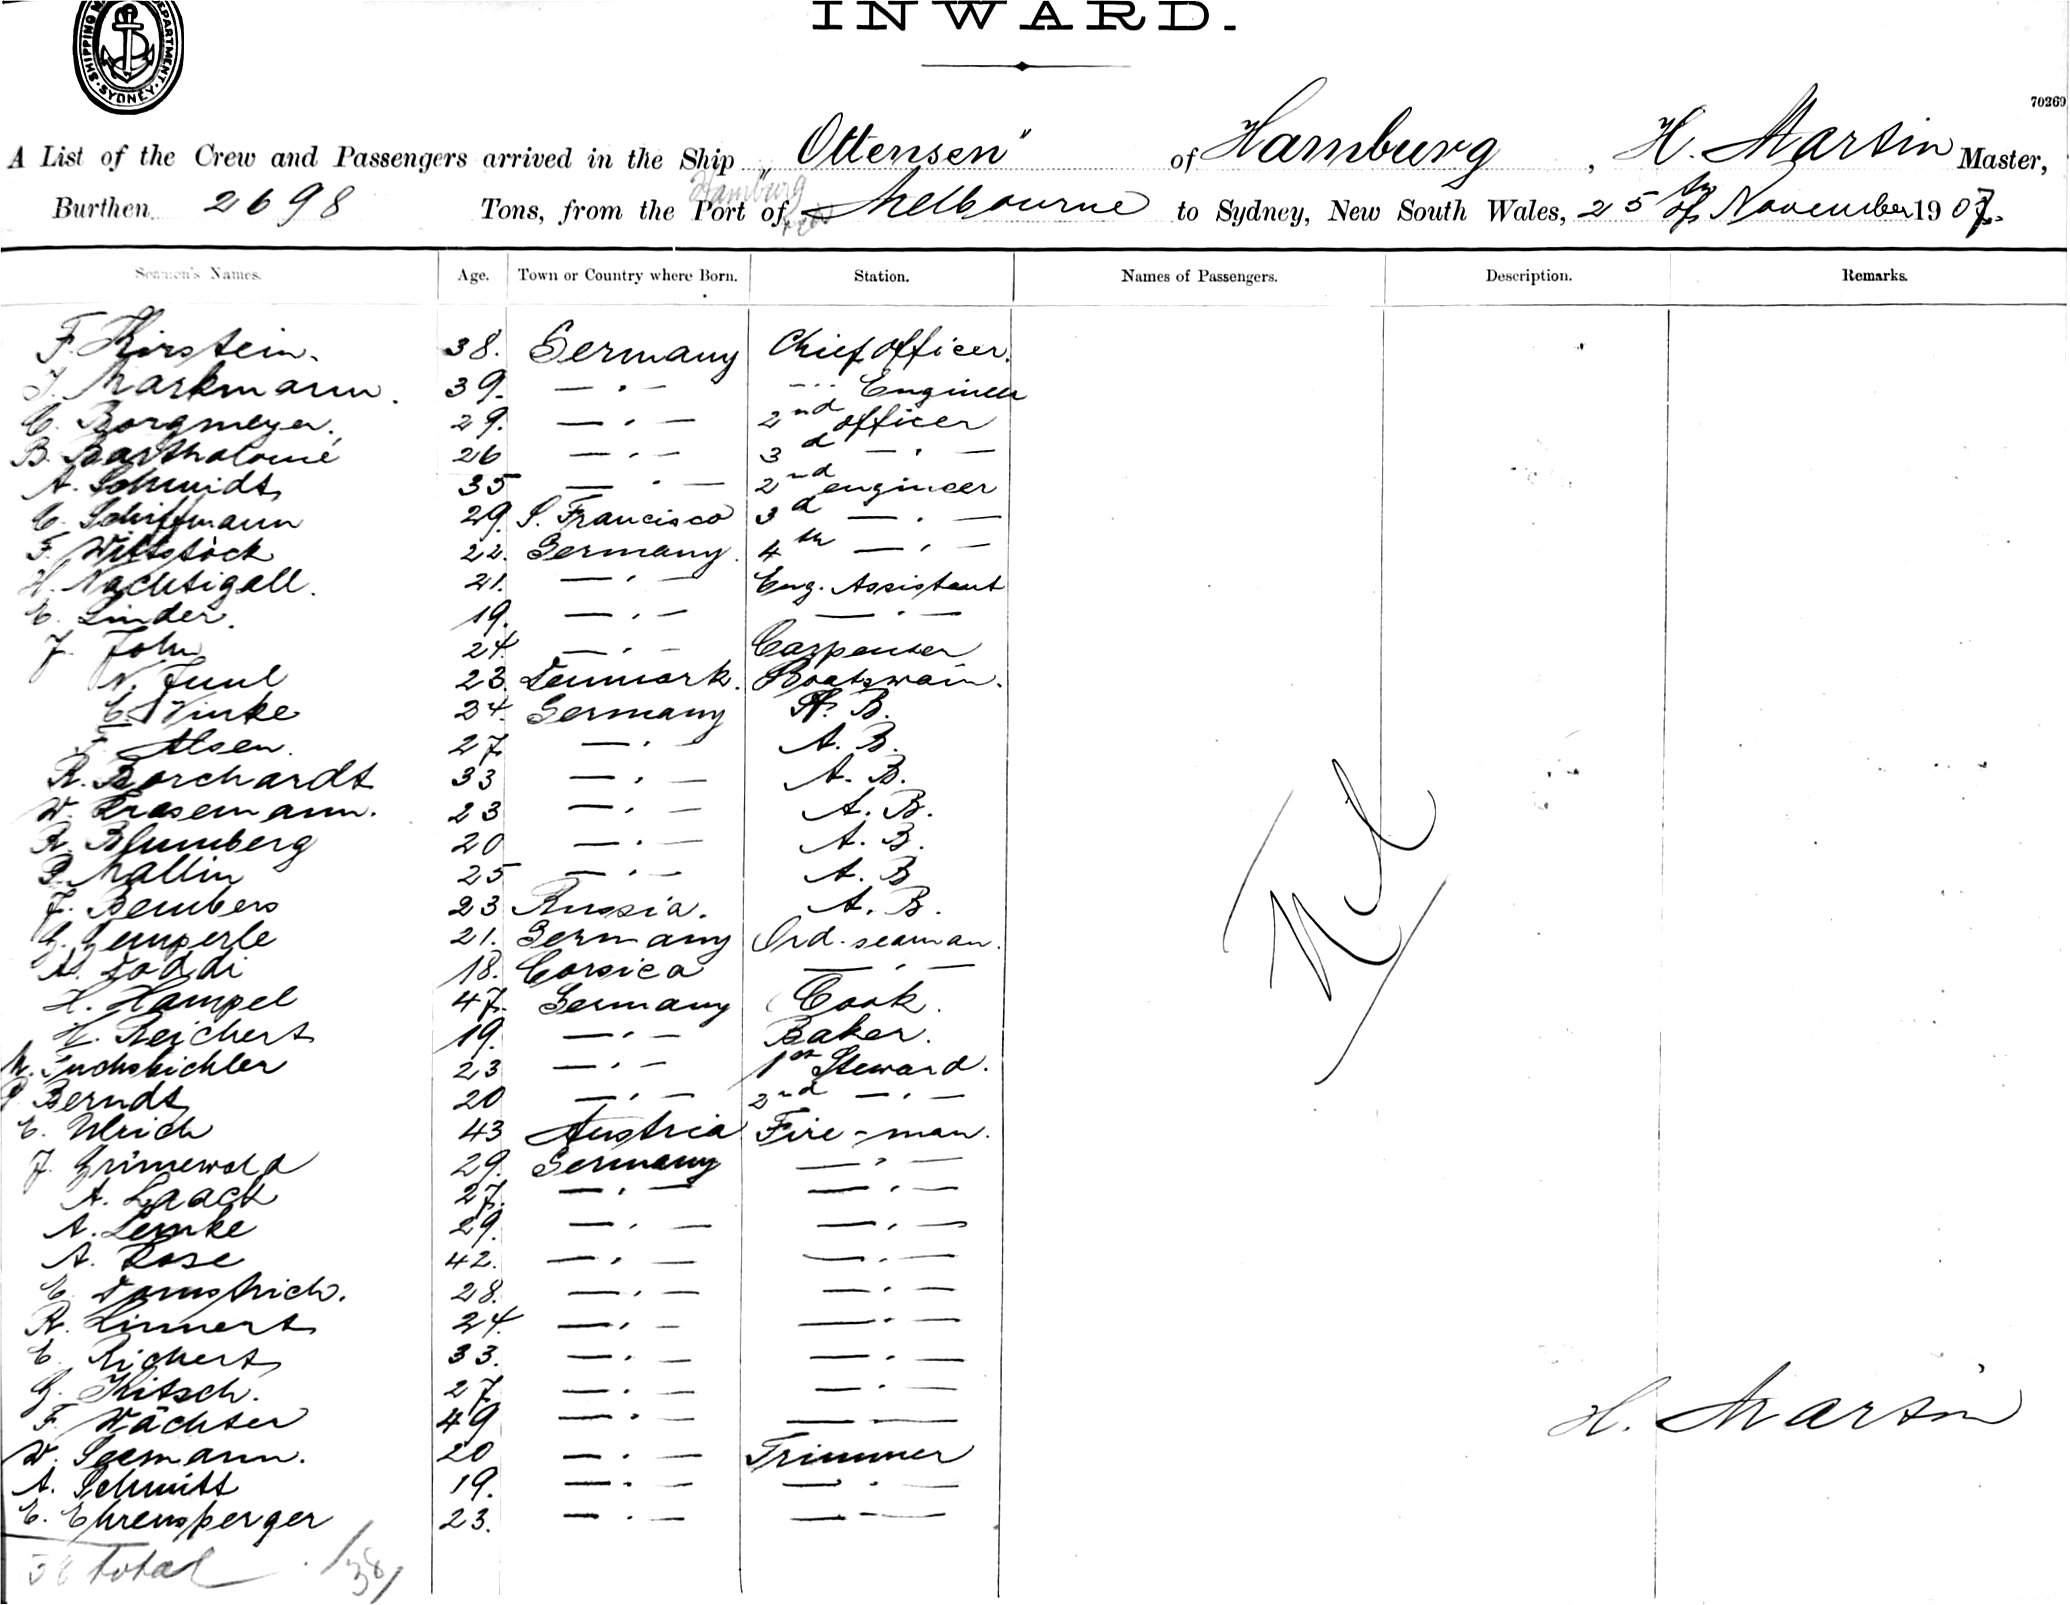 INWARD.
SHIPPING DEPARTMENT SYDNEY
70269
A List of the Crew and Passengers arrived in the Ship "Ottensen" of Hamburg, H. Martin Master,
Hamburg
Burthen 2698 Tons, from the Port of Melbourne to Sydney, New South Wales, 25th of November 1907.
Seamen's Names. Age. Town or Country where Born. Station. Names of Passengers. Description. Remarks.
F. Kirstein. 38. Germany Chief officer.
Markmann. 39. — " — — " — Engineer
C. Borgmeyer. 29. — " — 2nd officer
B. Bartholomé 26 — " — 3d — " —
A. Schmidt 35 — " — 2nd engineer
C. Schiffmann 29. S. Francisco 3d — " —
F. Wittstock 22. Germany. 4th — " —
H. Nachtigall. 21. — " — Eng. Assistant
E. Linder. 19. — " — — " —
J. John 24. — " — Carpenter
N. Juul 23. Denmark. Boatswain.
C. Vinke 24. Germany A. B.
Alsen. 27. — " — A. B.
R. Borchardt 33 — " — A. B.
W. Krasemann. 23 — " — A. B.
R. Blumberg 20 — " — A. B.
Mallin 25 — " — A. B
J. Bembers 23 Russia. A. B.
G. Gemperle 21. Germany Ord. seaman.
A. Toddi 18. Corsica — " —
H. Hampel 47. Germany Cook.
H. Reichert 19. — " — Baker.
M. Fuchsbichler 23 — " — 1st Steward.
P. Berndt 20 — " — 2nd — " —
E. Ulrich 43 Austria Fire-man.
J. Grünewald 29. Germany — " —
A. Laack 27. — " — — " —
A. Lemke 29. — " — — " —
A. Rose 42. — " — — " —
E. Damstrich. 28. — " — — " —
R. Linnert 24. — " — — " —
C. Richert 33. — " — — " —
G. Kitsch. 27 — " — — " —
F. Wächter 49 — " — — " —
W. Seemann. 20 — " — Trimmer
A. Schmitt 19. — " — — " —
E. Ehrensperger 23. — " — — " —
Nil
H. Martin
Total /38/